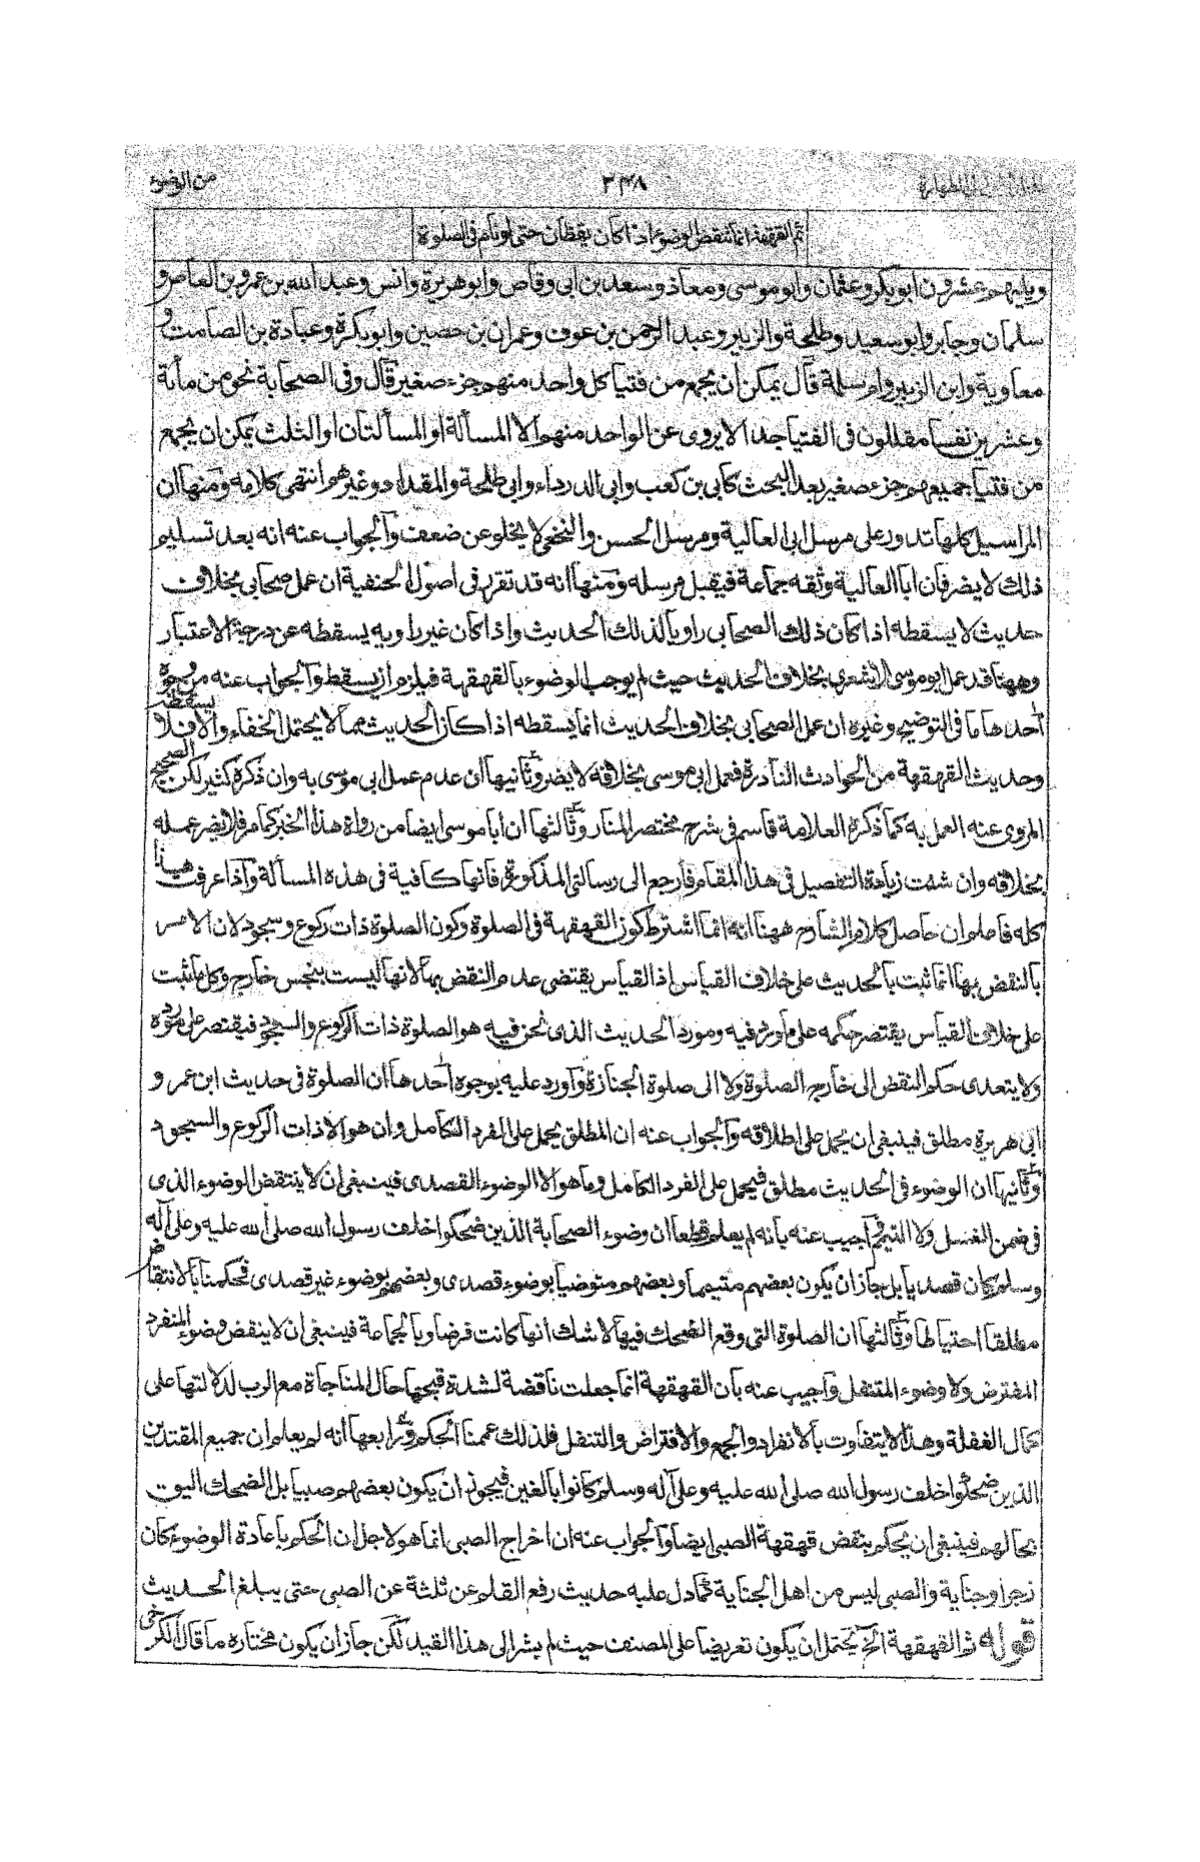 من الوضوء
٣٤٨
الطهارة
ثم القهقهة انما تنقض الوضوء اذا كان يقظان حتى لو نام فى الصلوة
ويليهم عشرون ابو بكر وعثمان وابو موسى ومعاذ وسعد بن ابى وقاص وابو هريرة وانس وعبد الله بن عمرو بن العاص و
سلمان وجابر وابو سعيد وطلحة والزبير وعبد الرحمن بن عوف وعمران بن حصين وابو بكرة وعبادة بن الصامت و
معاوية وابن الزبير وام سلمة قال يمكن ان يجمع من فتيا كل واحد منهم جزء صغير قال وفى الصحابة نحو من مأية
وعشرين نفسا مقلون فى الفتيا جدا لا يروى عن الواحد منهم الا المسألة او المسألتان او الثلث يمكن ان يجمع
من فتيا جميعهم جزء صغير بعد البحث كابى بن كعب وابى الدرداء وابى طلحة والمقداد وغيرهم انتهى كلامه ومنها ان
المراسيل كلها تدور على مرسل ابى العالية ومرسل الحسن والنخعى لا يخلو عن ضعف والجواب عنه انه بعد تسليم
ذلك لا يضر فان ابا العالية وثقه جماعة فيقبل مرسله ومنها انه قد تقرر فى اصول الحنفية ان عمل صحابى بخلاف
حديث لا يسقطه اذا كان ذلك الصحابى راويا لذلك الحديث واذا كان غير راويه يسقطه عن درجة الاعتبار
وههنا قد عمل ابو موسى الاشعرى بخلاف الحديث حيث لم يوجب الوضوء بالقهقهة فيلزم ان يسقط والجواب عنه من وجوه
احدها ما فى التوضيح وغيره ان عمل الصحابى بخلاف الحديث انما يسقطه اذا كان الحديث مما لا يحتمل الخفاء والا فلا يسقطه
وحديث القهقهة من الحوادث النادرة فعمل ابى موسى بخلافه لا يضر وثانيها ان عدم عمل ابى موسى به وان ذكره كثير لكن الصحيح
المروى عنه العمل به كما ذكره العلامة قاسم فى شرح مختصر المنار وثالثها ان ابا موسى ايضا من رواة هذا الخبر كما مر فلا يضر عمله
بخلافه وان شئت زيادة التفصيل فى هذا المقام فارجع الى رسالتى المذكورة فانها كافية فى هذه المسألة واذا عرفت هذا
كله فاعلم ان حاصل كلام الشارح ههنا انه انما اشترط كون القهقهة فى الصلوة وكون الصلوة ذات ركوع وسجود لان الامر
بالنقض بها انما ثبت بالحديث على خلاف القياس اذ القياس يقتضى عدم النقض بها لانها ليست بنجس خارج وكل ما ثبت
على خلاف القياس يقتصر حكمه على ما ورد فيه ومورد الحديث الذى نحن فيه هو الصلوة ذات الركوع والسجود فيقتصر على مورده
ولا يتعدى حكم النقض الى خارج الصلوة ولا الى صلوة الجنازة واورد عليه بوجوه احدها ان الصلوة فى حديث ابن عمر و
ابى هريرة مطلق فينبغى ان يحمل على اطلاقه والجواب عنه ان المطلق يحمل على الفرد الكامل وان هو الا ذات الركوع والسجود
وثانيها ان الوضوء فى الحديث مطلق فيحمل على الفرد الكامل وما هو الا الوضوء القصدى فينبغى ان لا ينتقض الوضوء الذى
فى ضمن الغسل ولا التيمم اجيب عنه بانه لم يعلم قطعا ان وضوء الصحابة الذين ضحكوا خلف رسول الله صلى الله عليه وعلى آله
وسلم كان قصديا بل جاز ان يكون بعضهم متيمما وبعضهم متوضيا بوضوء قصدى وبعضهم بوضوء غير قصدى فحكمنا بالانتقاض
مطلقا احتياطا وثالثها ان الصلوة التى وقع الضحك فيها لا شك انها كانت فرضا وبالجماعة فينبغى ان لا ينقض وضوء المنفرد
المفترض ولا وضوء المتنفل واجيب عنه بان القهقهة انما جعلت ناقضة لشدة قبحها حال المناجاة مع الرب لدلالتها على
كمال الغفلة وهذا لا يتفاوت بالانفراد والجمع والافتراض والتنفل فلذلك عممنا الحكم ورابعها انه لم يعلم ان جميع المقتدين
الذين ضحكوا خلف رسول الله صلى الله عليه وعلى آله وسلم كانوا بالغين فيجوز ان يكون بعضهم صبيا بل الضحك اليق
بحالهم فينبغى ان يحكم بنقض قهقهة الصبى ايضا والجواب عنه ان اخراج الصبى انما هو لاجل ان الحكم باعادة الوضوء كان
زجرا وجناية والصبى ليس من اهل الجناية كما دل عليه حديث رفع القلم عن ثلثة عن الصبى حتى يبلغ الحديث
قوله ثم القهقهة الخ يحتمل ان يكون تعريضا على المصنف حيث لم يشر الى هذا القيد لكن جاز ان يكون مختاره ما قال الكرخى